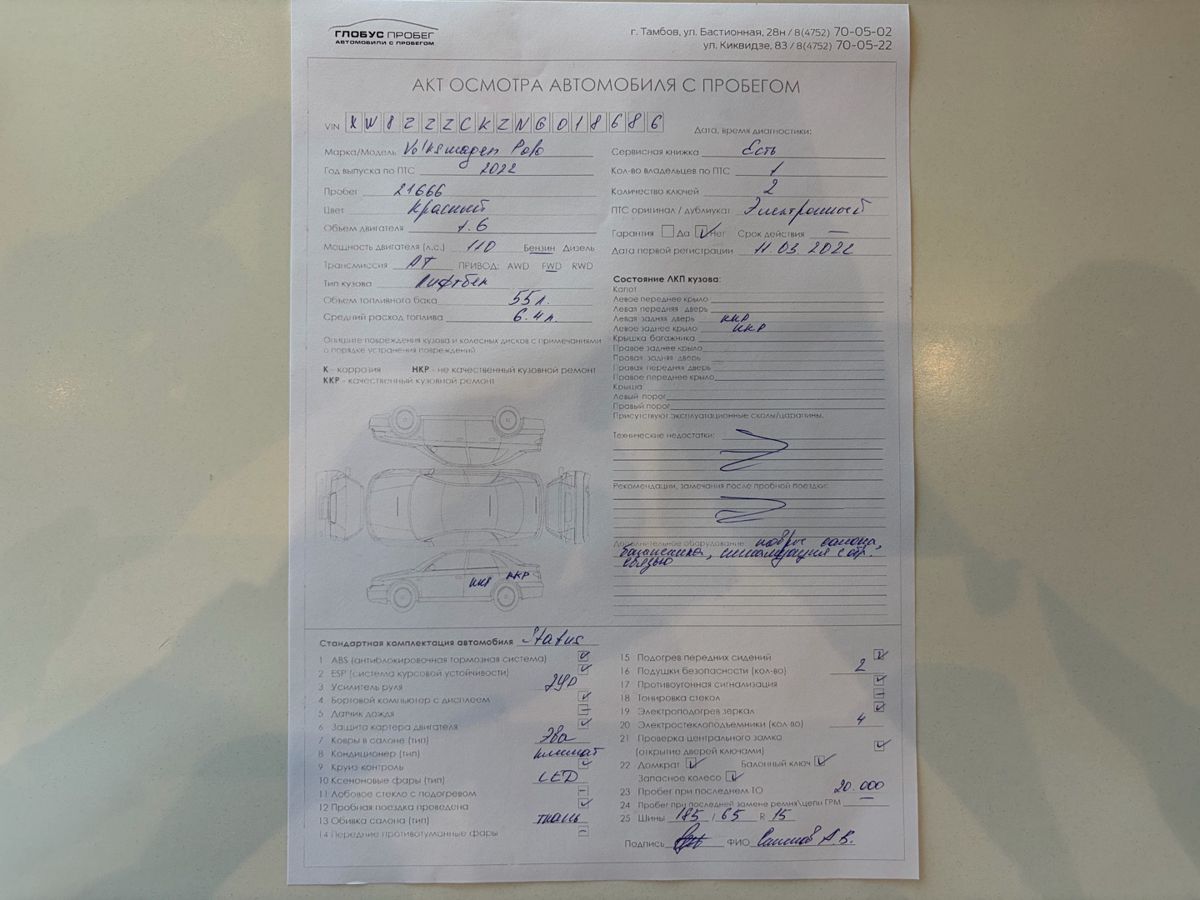 ГЛОБУС ПРОБЕГ
АВТОМОБИЛИ С ПРОБЕГОМ
г. Тамбов, ул. Бастионная, 28н / 8(4752) 70-05-02
ул. Киквидзе, 83 / 8(4752) 70-05-22
АКТ ОСМОТРА АВТОМОБИЛЯ С ПРОБЕГОМ
VIN XW8ZZZCKZNG018686
Дата, время диагностики:
Марка/Модель Volkswagen Polo
Год выпуска по ПТС 2022
Пробег 21666
Цвет Красный
Объем двигателя 1.6
Мощность двигателя (л.с.) 110 Бензин Дизель
Трансмиссия АТ ПРИВОД: AWD FWD RWD
Тип кузова Лифтбек
Объем топливного бака 55 л.
Средний расход топлива 6.4 л.
Опишите повреждения кузова и колесных дисков с примечаниями
о порядке устранения повреждений
К - коррозия НКР - не качественный кузовной ремонт
ККР - качественный кузовной ремонт
ККР ККР
Сервисная книжка Есть
Кол-во владельцев по ПТС 1
Количество ключей 2
ПТС оригинал / дубликат Электронный
Гарантия Да Нет Срок действия —
Дата первой регистрации 11.03.2022
Состояние ЛКП кузова:
Капот
Левое переднее крыло
Левая передняя дверь
Левая задняя дверь ККР
Левое заднее крыло ККР
Крышка багажника
Правое заднее крыло
Правая задняя дверь
Правая передняя дверь
Правое переднее крыло
Крыша
Левый порог
Правый порог
Присутствуют эксплуатационные сколы/царапины.
Технические недостатки:
Рекомендации, замечания после пробной поездки:
Дополнительное оборудование: ковры салона,
багажника, сигнализация с обр.
связью
Стандартная комплектация автомобиля Status
1 ABS (антиблокировочная тормозная система)
2 ESP (система курсовой устойчивости)
3 Усилитель руля ЭУР
4 Бортовой компьютер с дисплеем
5 Датчик дождя
6 Защита картера двигателя
7 Ковры в салоне (тип) Эва
8 Кондиционер (тип) климат
9 Круиз контроль
10 Ксеноновые фары (тип) LED
11 Лобовое стекло с подогревом
12 Пробная поездка проведена
13 Обивка салона (тип) ткань
14 Передние противотуманные фары
15 Подогрев передних сидений
16 Подушки безопасности (кол-во) 2
17 Противоугонная сигнализация
18 Тонировка стекол
19 Электроподогрев зеркал
20 Электростеклоподъемники (кол-во) 4
21 Проверка центрального замка
(открытие дверей ключами)
22 Домкрат Балонный ключ
Запасное колесо
23 Пробег при последнем ТО 20.000
24 Пробег при последней замене ремня\цепи ГРМ —
25 Шины 185 / 65 R 15
Подпись ФИО А.В.